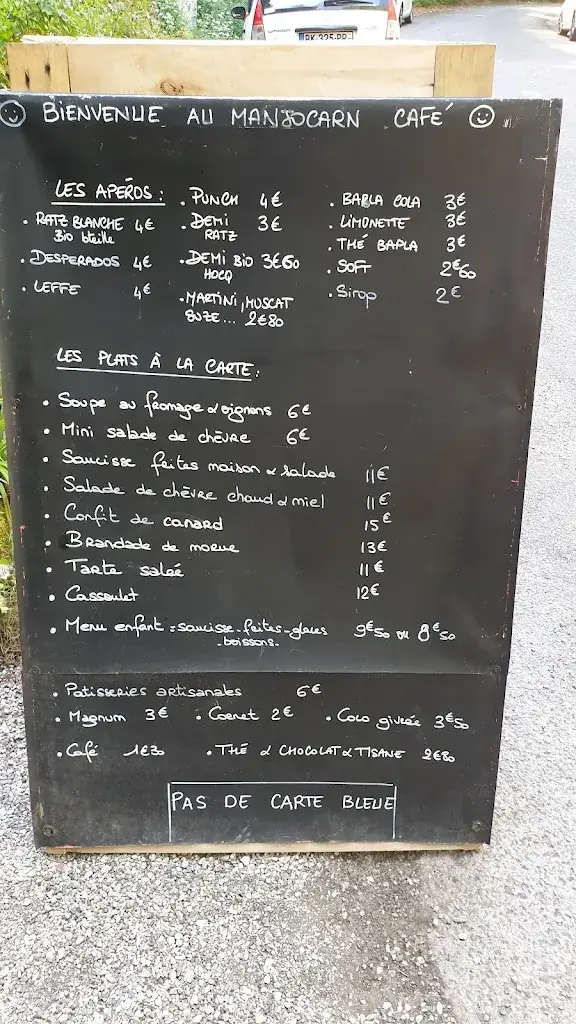 BK-325-PR
BIENVENUE AU MANJOCARN CAFÉ
LES APÉROS :
. RATZ BLANCHE 4€
Bio bteille
. DESPERADOS 4€
. LEFFE 4€
. PUNCH 4€
. DEMI 3€
RATZ
. DEMI BIO 3€60
HOCQ
. MARTINI, MUSCAT
SUZE... 2€80
. BABLA COLA 3€
. LIMONETTE 3€
. THÉ BAPLA 3€
. SOFT 2€60
. Sirop 2€
LES PLATS À LA CARTE :
. Soupe au fromage & oignons 6€
. Mini salade de chèvre 6€
. Saucisse frites maison & salade 11€
. Salade de chèvre chaud & miel 11€
. Confit de canard 15€
. Brandade de morue 13€
. Tarte salée 11€
. Cassoulet 12€
. Menu enfant = saucisse-frites-glaces 9€50 ou 8€50
-boissons-
. Patisseries artisanales 6€
. Magnum 3€ . Cornet 2€ . Coco givrée 3€50
. Café 1€30 . THÉ & CHOCOLAT & TISANE 2€80
PAS DE CARTE BLEUE